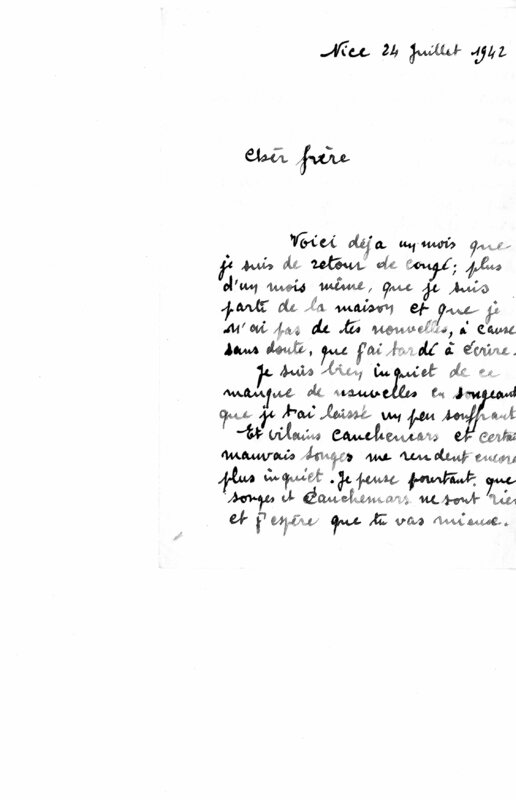 Nice 24 Juillet 1942
Cher frère
Voici déja un mois que
je suis de retour de congé; plus
d'un mois même, que je suis
parti de la maison et que je
n'ai pas de tes nouvelles, à cause
sans doute, que j'ai tardé à écrire.
Je suis bien inquiet de ce
manque de nouvelles en songeant
que je t'ai laissé un peu souffrant
Et vilains cauchemars et certai
mauvais songes me rendent encore
plus inquiet. Je pense pourtant, que
songes et Cauchemars ne sont rien
et j'espère que tu vas mieux.